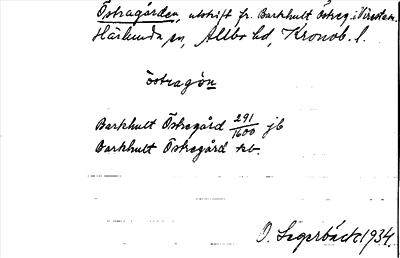 Östragården, utskift fr. Barkhult Östreg. i Virestad.
Härlunda sn, Allbo hd, Kronob. l.
östragọ̈n
Barkhult Östregård 291/1600 jb
Barkhult Östregård kb.
D. Segerbäck 1934.